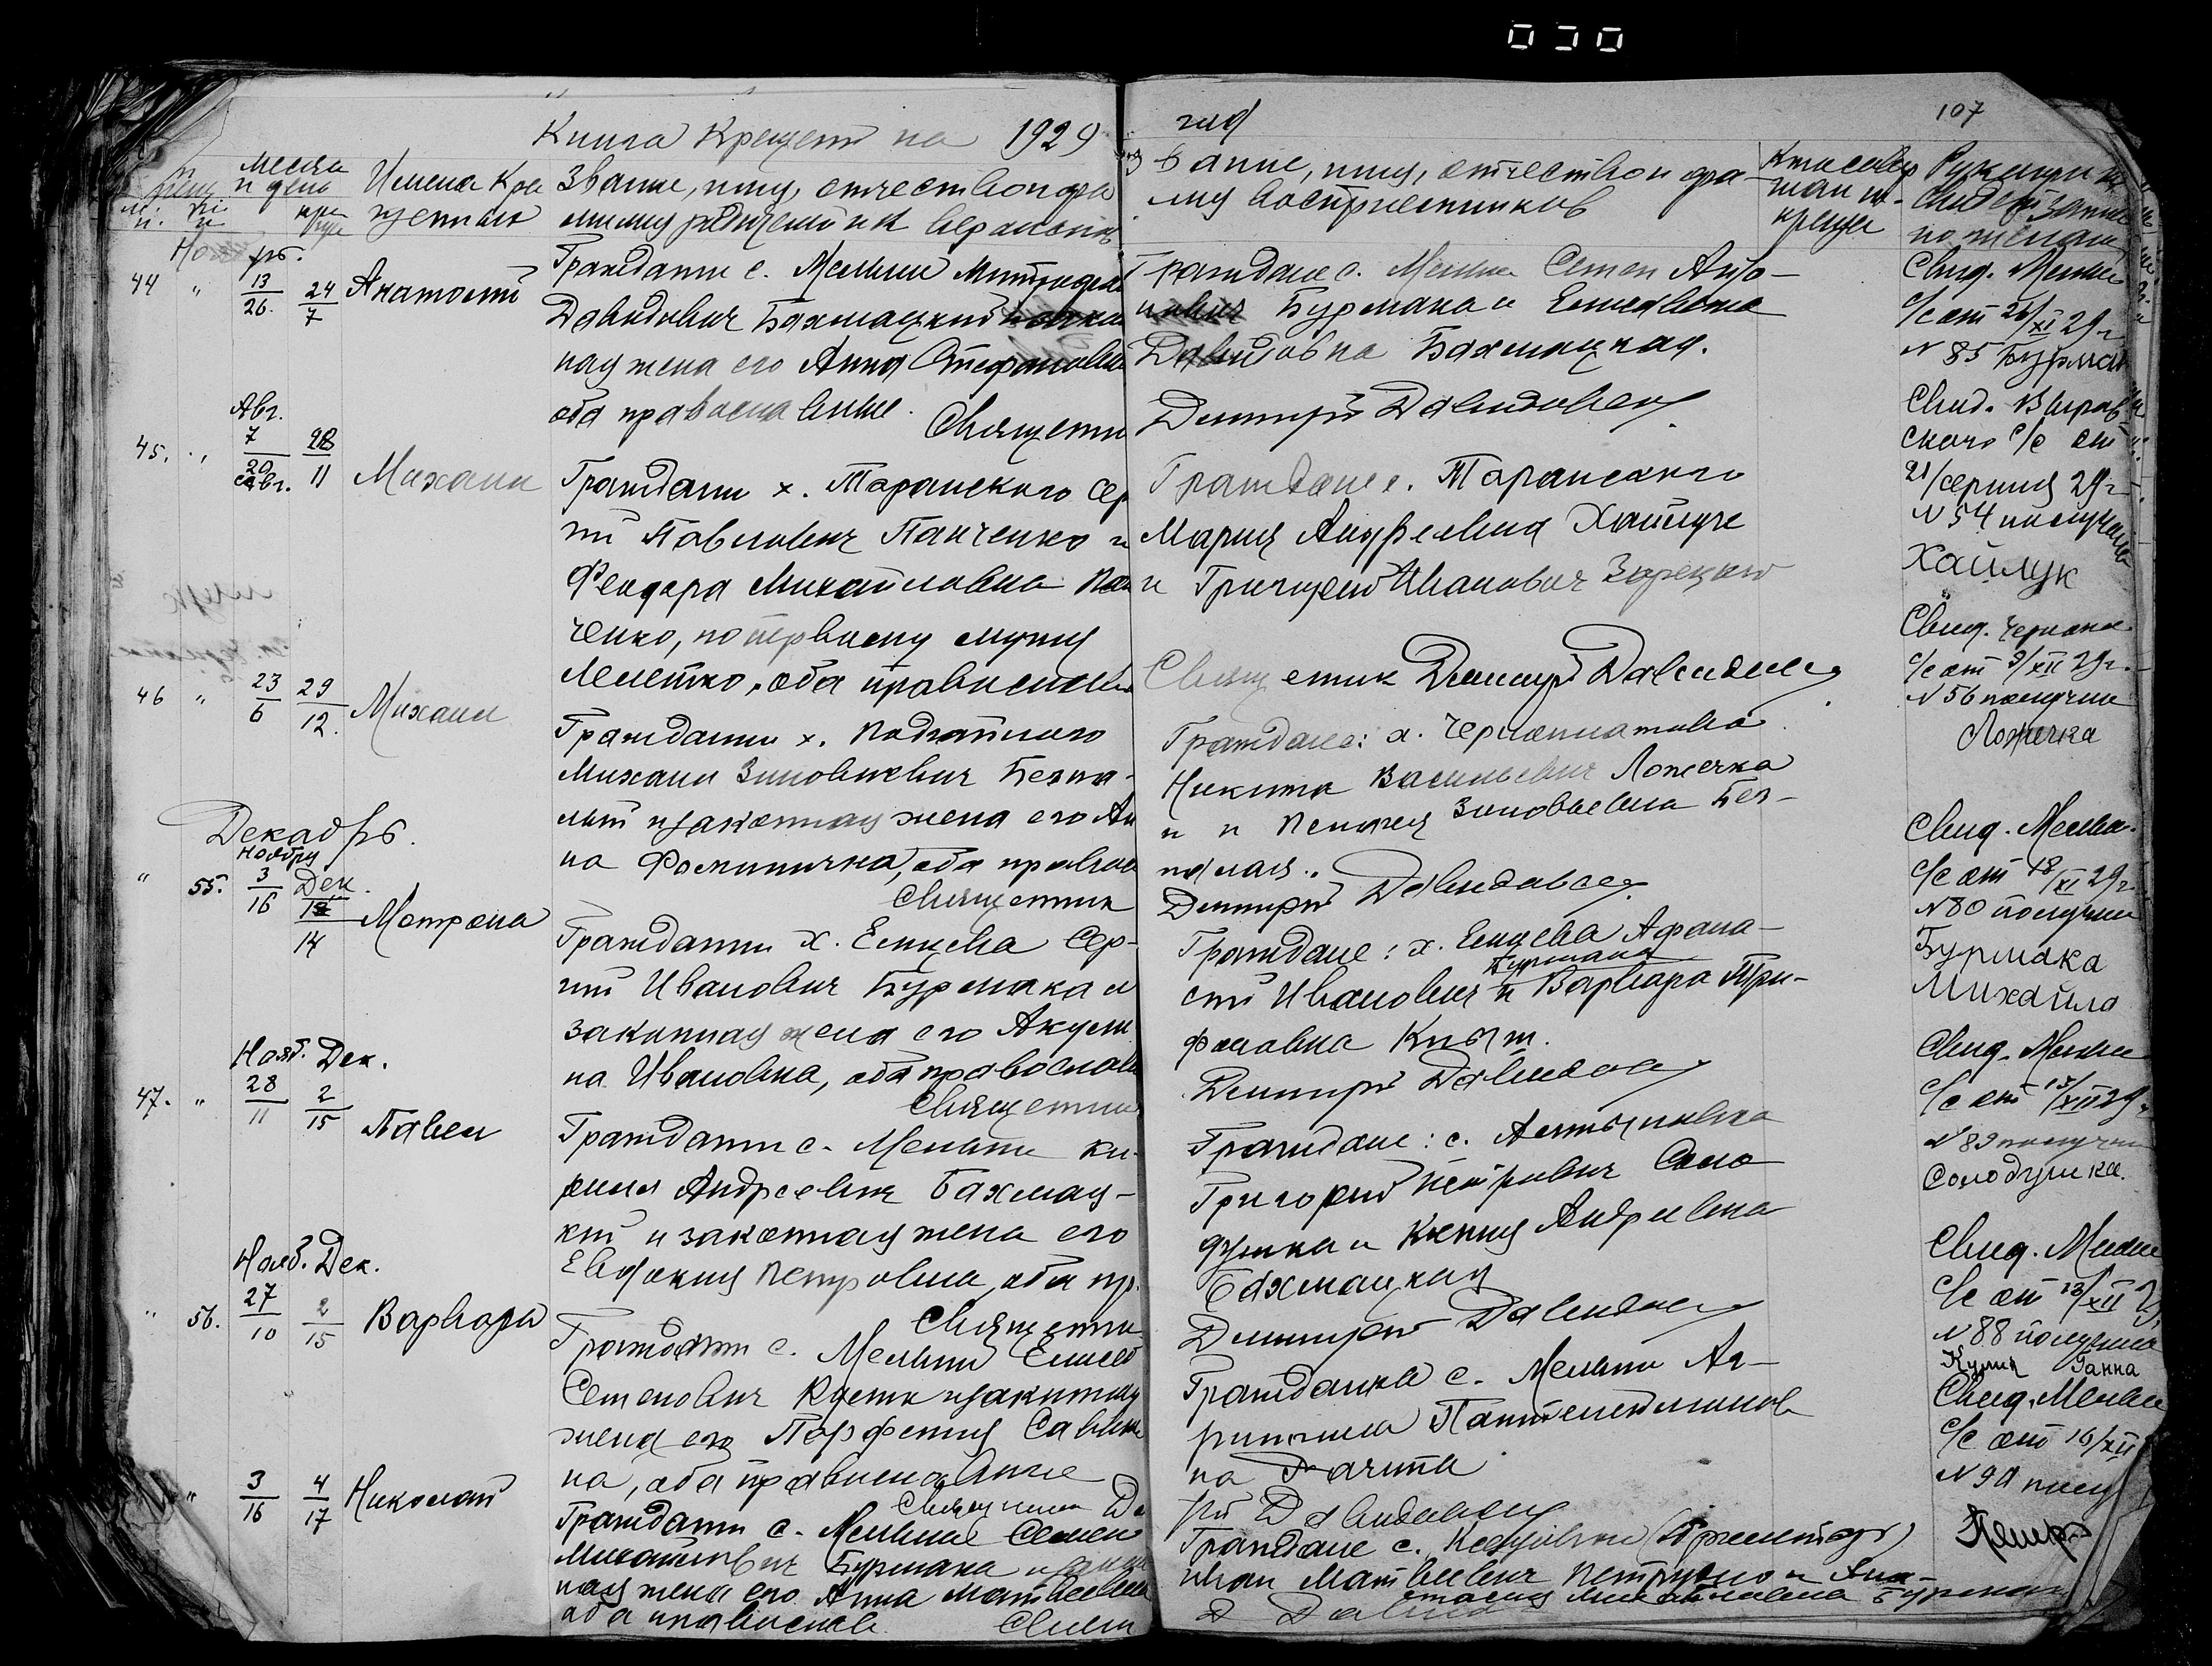 030
Книга Крещений на 1929
год
107
месяц
и день
Имена Кре
щенных
Звание, имя, отчество и фа
милия родителей и их вероиспов
звание, имя, отчество и фа-
мия восприемников
Кто совер
шал т.
креще
Рукопри
Свидет запис
по желан
Ноябрь.
44 " 13/26. 24/7 Анатолий
Гражданин с. Мельни Митрофан
Давидович Бахмацкий
ная жена его Анна Стефановна
оба православные.
Священни
Граждане с. Мельни Семен
Бурмака и Елисавета
Давидовна Бахмацкая.
Димитрий Давидович
Свид. Мельн
с/с от 26/XI 29 г
N 85 Бурмак
Авг.
45. " 7/20 28/11 Михаил
авг.
Гражданин х. Таранского Сер
гій Павлович Панченко и
Феодора Михайловна Пан
ченко, по первому мужу
оба православн
Граждане с. Таранского
Мария Андреевна Хайлук
и Григорий Иванович Зарецкий
Священник Димитрий Давидович
Свид.
ского с/с от
21/серпня 29 г
N 54 получила
Хайлук
46 " 23/6 29/12. Михаил
Гражданин х. Подгайного
Михаил Зиновиевич Безпа-
лый и законная жена его Ан
на Фоминична, оба правосл
Священник
Граждане: х.
Никита Васильевич Ложечка
и Пелагея Зиновьевна Без-
палая.
Димитрий Давидович
Свид.
с/с от 9/XII 29 г.
N 56 получил
Ложечка
Декабрь.
Ноября
" 55. 3/16 Дек. 1/14 Матрона
Гражданин х. Елицева Сер-
гій Иванович Бурмака и
законная жена его Акули
на Ивановна, оба православ
Священник
Граждане: х. Елицева Афана-
Бурмака
сий Иванович и Варвара Три-
фоновна
Димитрий Давидович
Свид. Мельн.
с/с от 18/XI 29 г
N 80 получил
Бурмака
Михайло
Нояб. Дек.
47. " 28/11 2/15 Павел
Гражданин с. Мельни Ки-
рилл Андреевич Бахмац-
кий и законная жена его
Евдокия Петровна, оба пр.
Священни
Граждане: с.
Григорий Петрович Соло
душка и Ксения Андреевна
Бахмацкая
Димитрий Давидович
Свид. Мельн
с/с от 13/XII 29
N 89 получил
Солодушка.
Нояб. Дек.
" 56. 27/10 2/15 Варвара
Гражданин с. Мельни Елисей
Семенович и законная
жена его Парфения Саввич
на, оба православные
Священник Ди
Гражданка с. Мельни Аг-
рипина Пантелеимонов
на
рий Давидович
Свид. Мельн
с/с от 13/XII 2
N 88 получила
Ганна
" 3/16 4/17 Николай
Гражданин с. Мельни Семен
Михайлович Бурмака и закон
ная жена его Анна Матвеевна
оба православ.
Свящ
Граждане с.
Иван Матвеевич Петрусь и Ана-
стасия Михайловна Бурмака
Д Давид
Свид. Мельн
с/с от 16/XII
N 90 полу